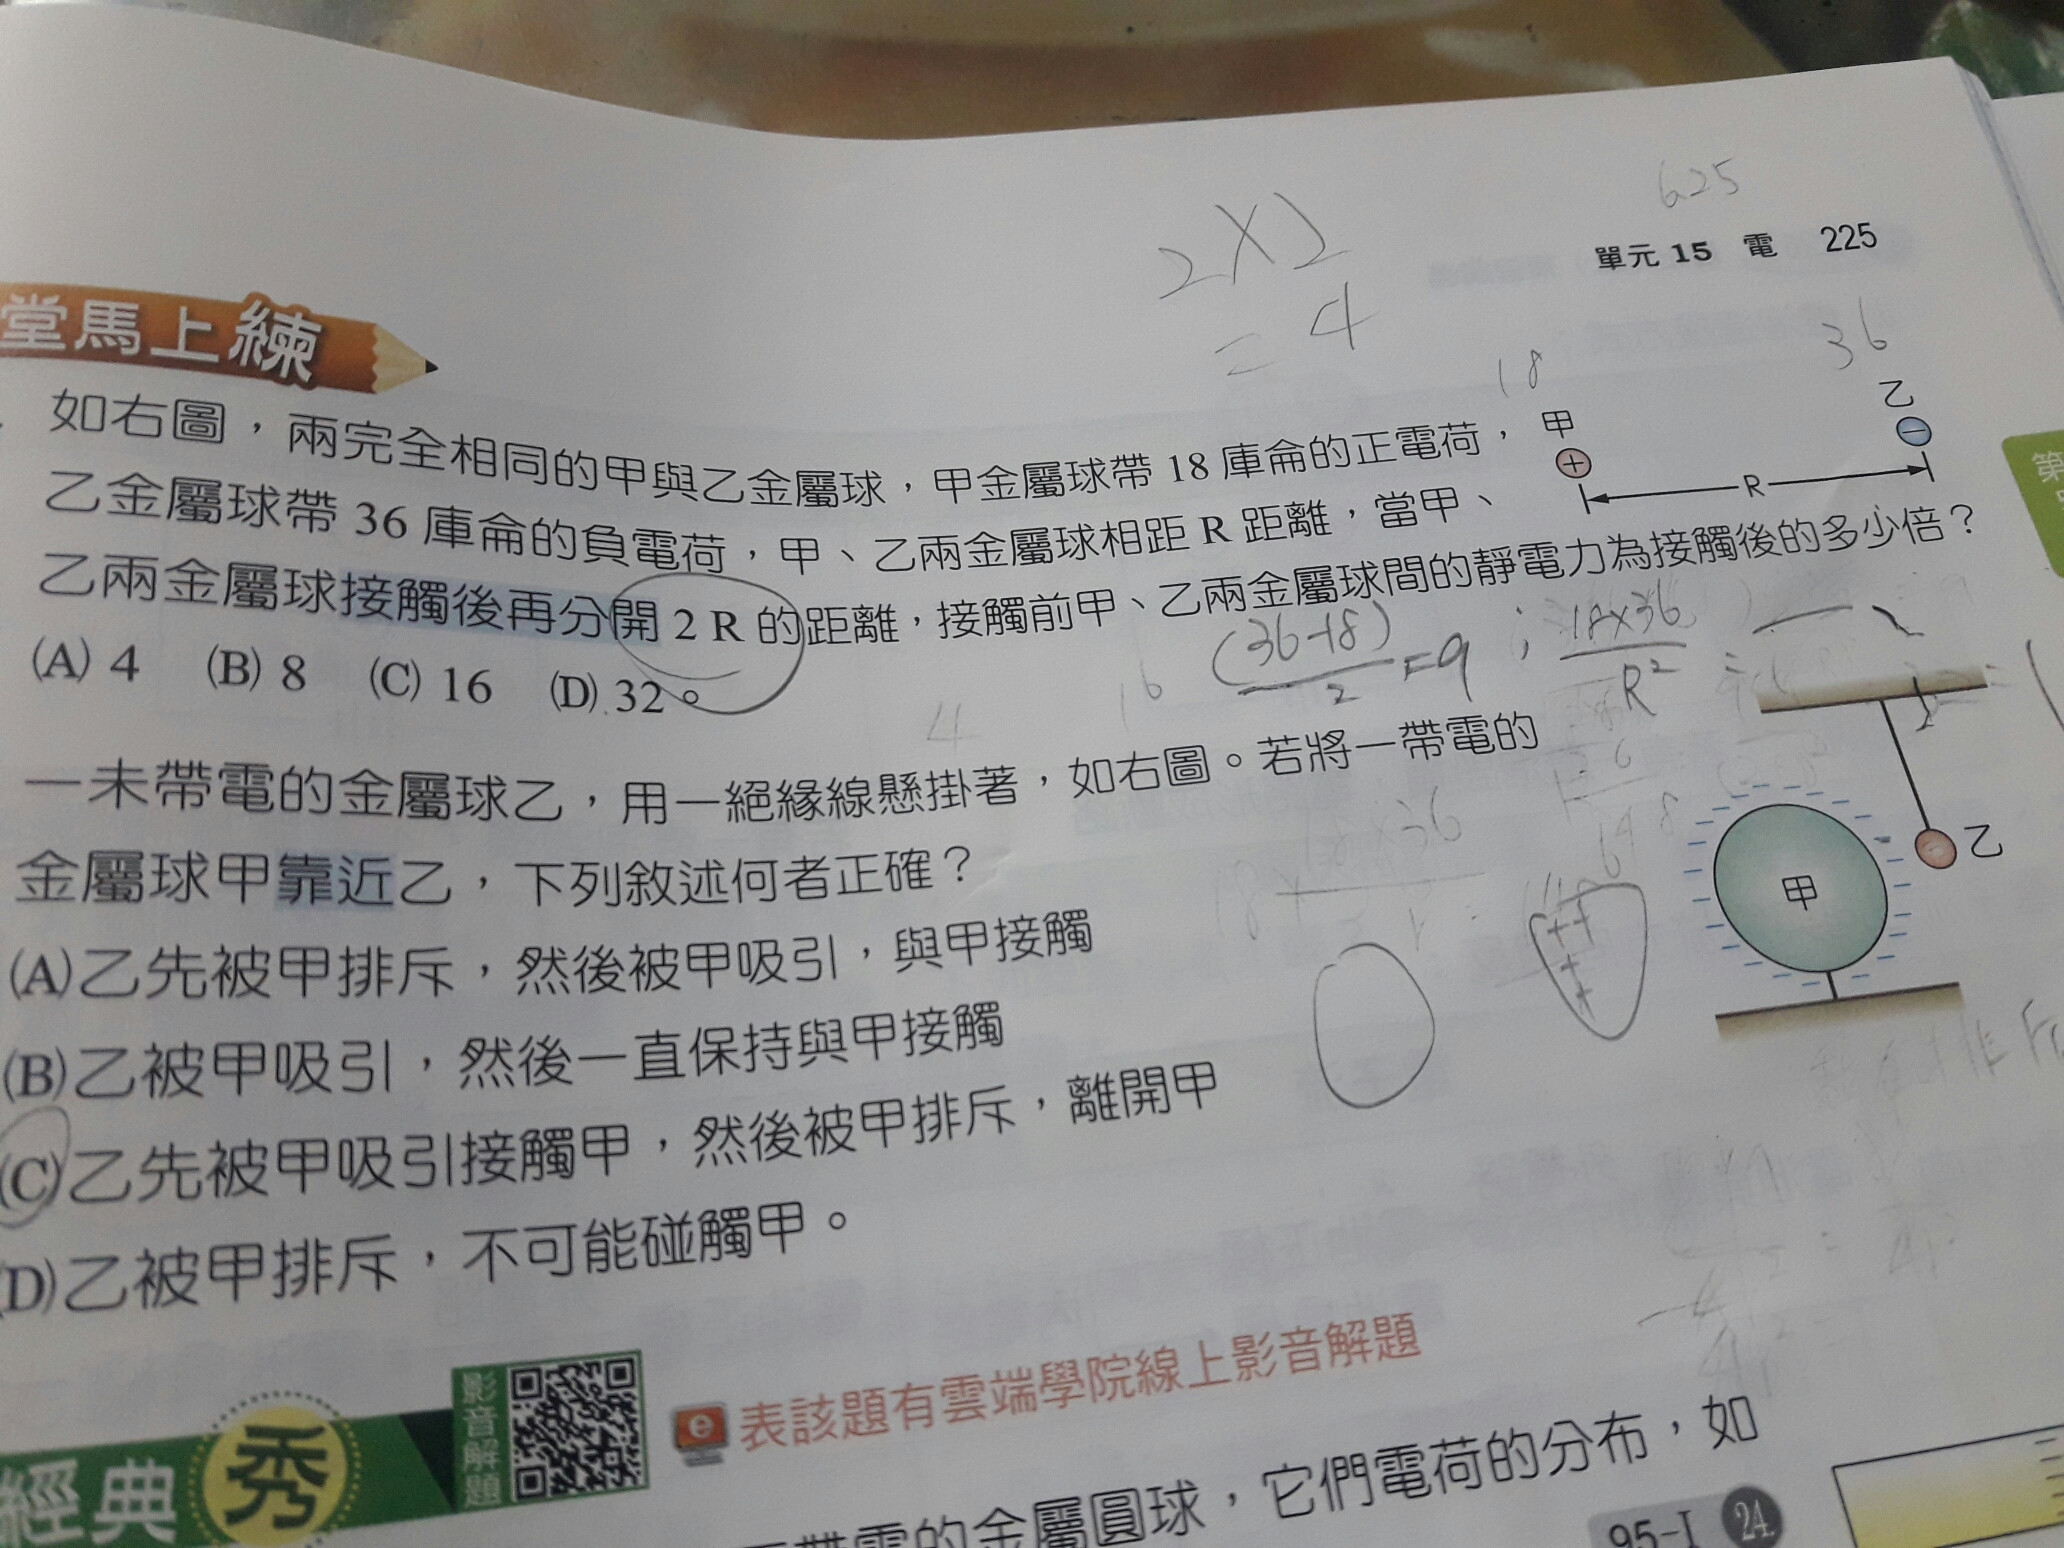 625
單元 15 電 225
2×2
=4
堂馬上練
18
36
甲
乙
R
如右圖，兩完全相同的甲與乙金屬球，甲金屬球帶 18 庫侖的正電荷，
乙金屬球帶 36 庫侖的負電荷，甲、乙兩金屬球相距 R 距離，當甲、
乙兩金屬球接觸後再分開 2 R 的距離，接觸前甲、乙兩金屬球間的靜電力為接觸後的多少倍？
(A) 4 (B) 8 (C) 16 (D) 32。
(36-18)/2=9 ; 18×36/R²
4
16
一未帶電的金屬球乙，用一絕緣線懸掛著，如右圖。若將一帶電的
金屬球甲靠近乙，下列敘述何者正確？
(A)乙先被甲排斥，然後被甲吸引，與甲接觸
(B)乙被甲吸引，然後一直保持與甲接觸
(C)乙先被甲吸引接觸甲，然後被甲排斥，離開甲
(D)乙被甲排斥，不可能碰觸甲。
18×36
甲
乙
排斥
第
經典秀
影音解題
e 表該題有雲端學院線上影音解題
帶電的金屬圓球，它們電荷的分布，如
95-I 24.